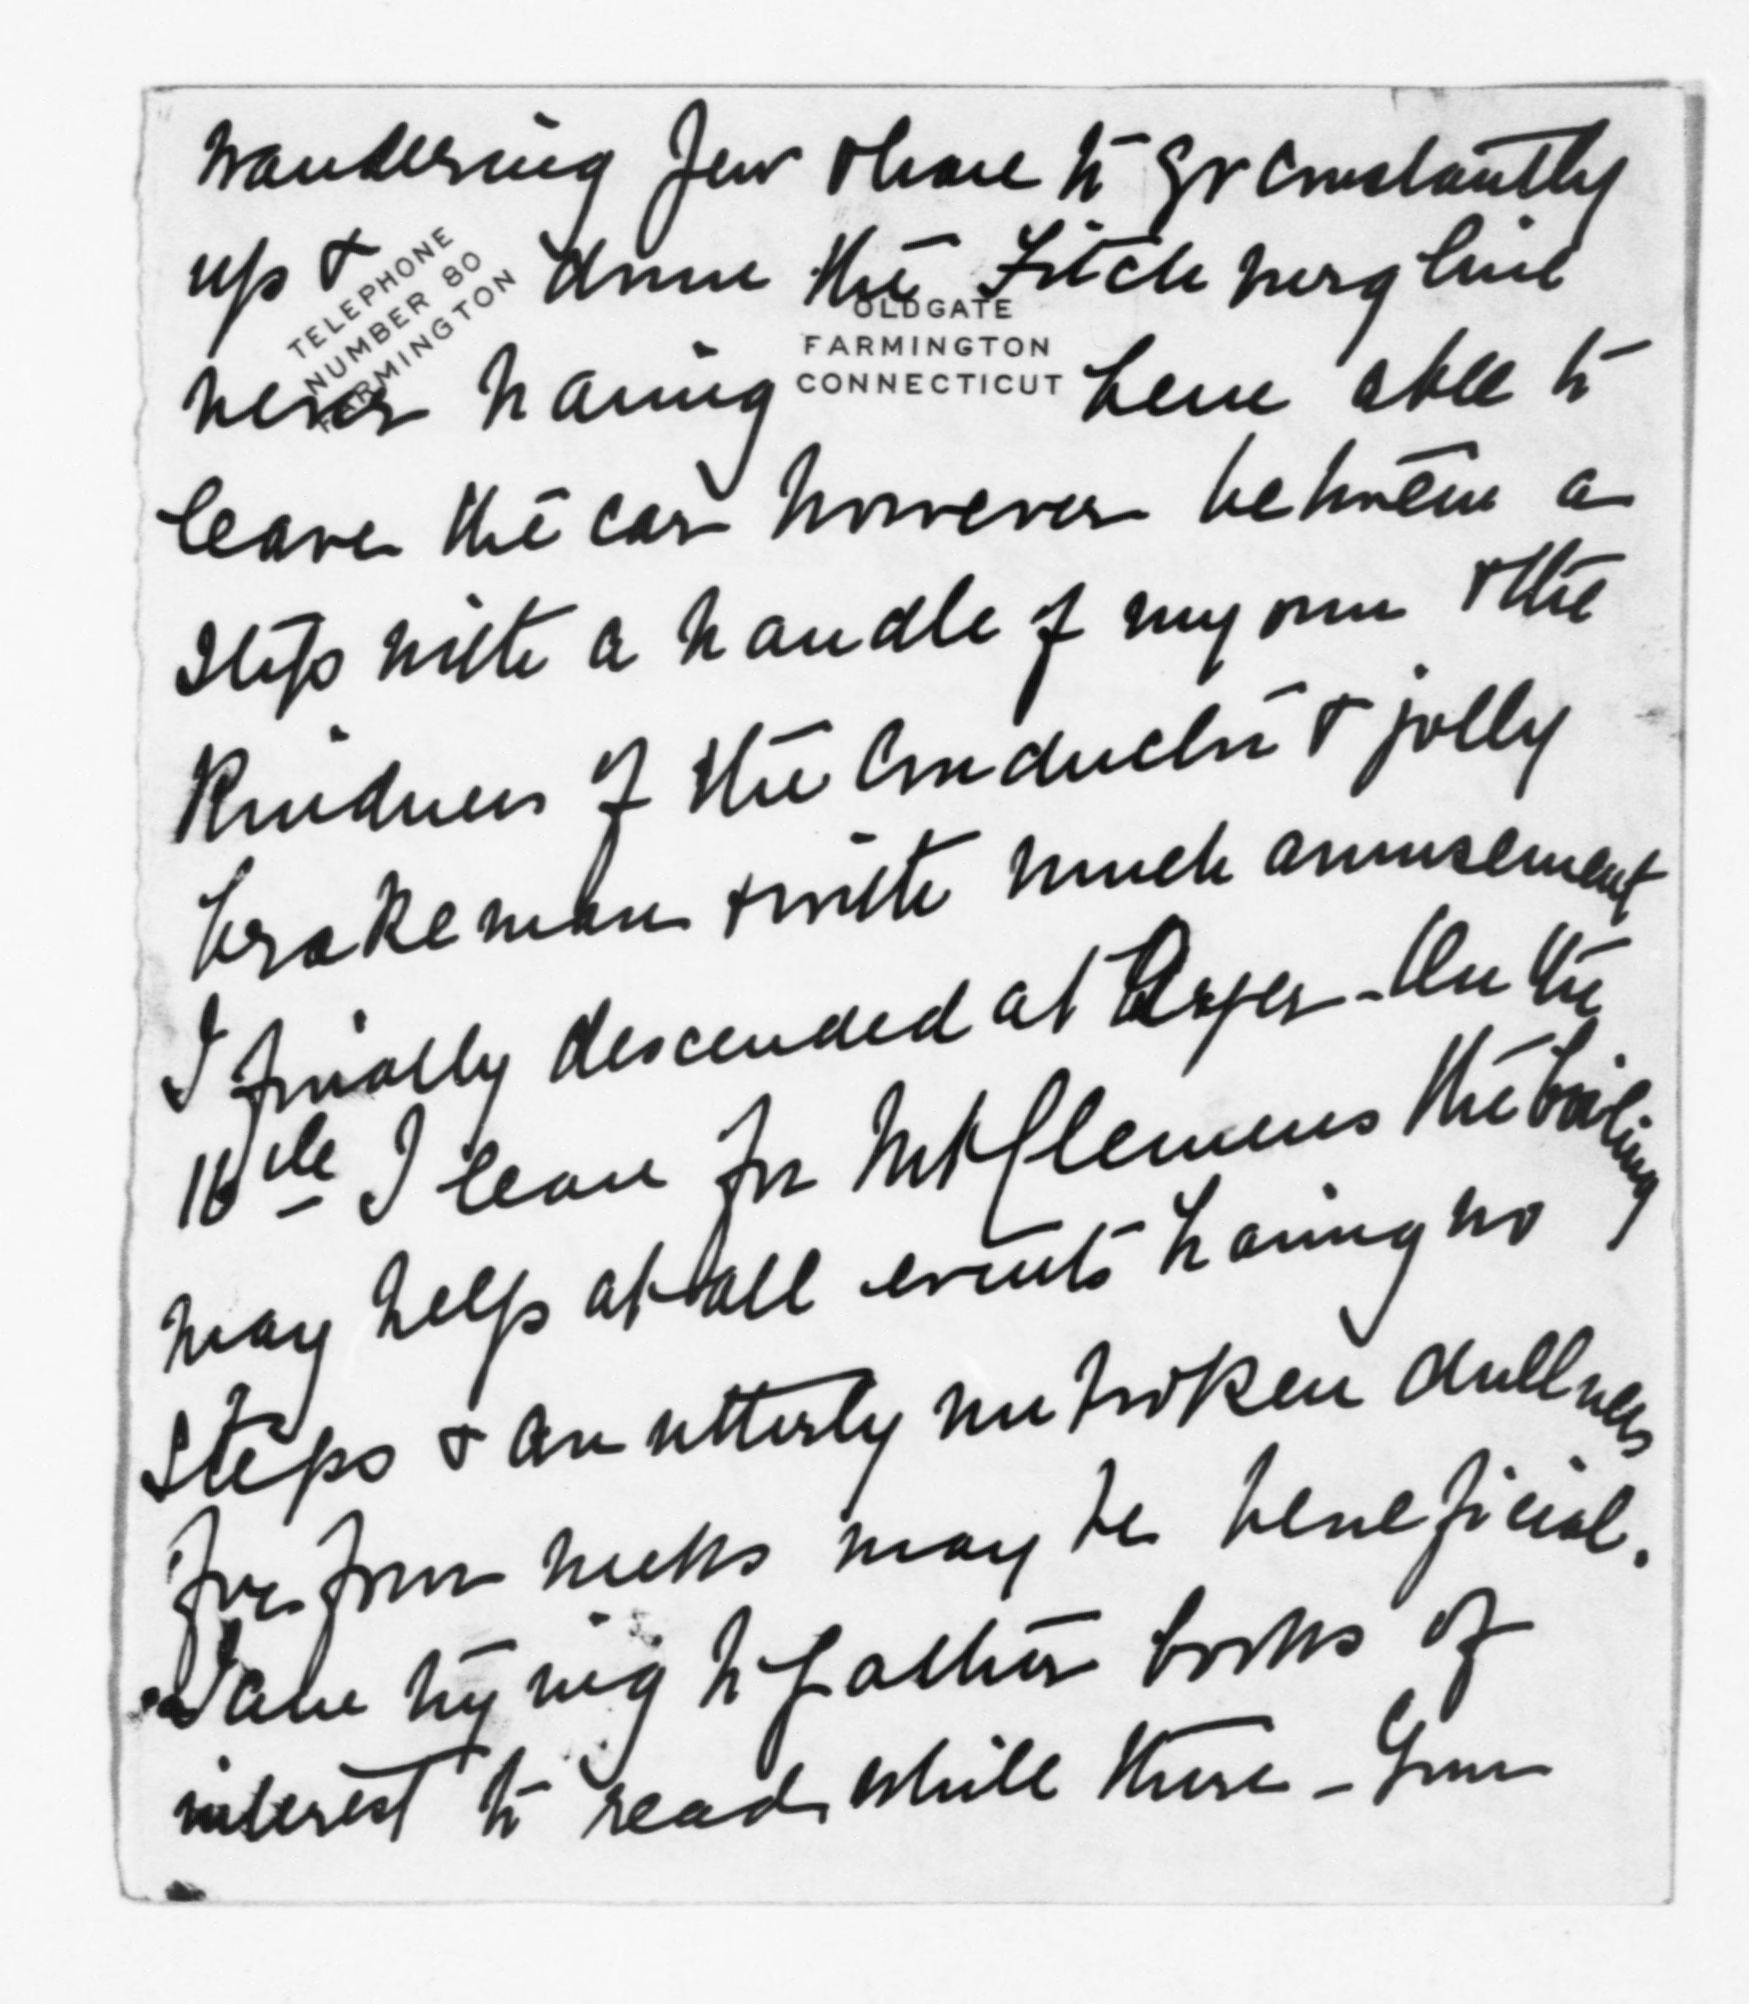 TELEPHONE
NUMBER 80
FARMINGTON
OLDGATE
FARMINGTON
CONNECTICUT
wandering Jew & have to go constantly
up & down the Fitchburg line
never having been able to
leave the car however between a
step with a handle of my own & the
kindness of the conductor & jolly
brakeman & with much amusement
I finally descended at Ayer - On the
16th I leave for Mt Clemens the boiling
may help at all events having no
steps & an utterly unbroken dullness
for four weeks may be beneficial.
I am trying to gather books of
interest to read while there - Your